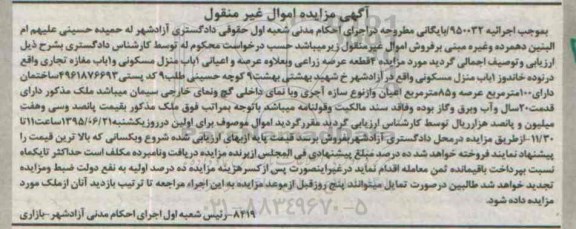 آگهی مزایده اموال غیر منقول
بموجب اجرائیه ۹۵۰۰۳۲/بایگانی مطروحه دراجرای احکام مدنی شعبه اول حقوقی دادگستری آزادشهر له حمیده حسینی علیهم ام
البنین دهمرده وغیره مبنی برفروش اموال غیرمنقول زیرمیباشد حسب درخواست محکوم له توسط کارشناس دادگستری بشرح ذیل
ارزیابی وتوصیف اجمالی گردید مورد مزایده ۲قطعه عرصه زراعی وبعلاوه عرصه و اعیانی ۱باب منزل مسکونی و۱باب مغازه تجاری واقع
درنوده خاندوز ۱باب منزل مسکونی واقع در آزادشهر خ شهید بهشتی بهشت۹ کوچه حسینی طلب۹ کد پستی۴۹۶۱۸۷۶۶۹۳ساختمان
دارای۱۰۰مترمربع عرصه و۸۵مترمربع اعیان وازنوع سازه آجری وبا نمای داخلی گچ ونمای خارجی سیمان میباشد ملک مذکور دارای
قدمت۲۰سال وآب وبرق وگاز بوده وفاقد سند مالکیت وقولنامه میباشد باتوجه بمراتب فوق ملک مذکور بقیمت پانصد وسی وهفت
میلیون و پانصد هزارریال توسط کارشناس ارزیابی گردید مقررگردید اموال موصوف برای اولین درروزیکشنبه۱۳۹۵/۰۶/۲۱ساعت۱۱تا
۱۱/۳۰-ازطریق مزایده درمحل دادگستری آزادشهربفروش برسد قیمت پایه ازبهای ارزیابی شده شروع وبکسانی که بالا ترین قیمت را
پیشنهاد نمایند فروخته خواهد شد ده درصد مبلغ پیشنهادی فی المجلس ازبرنده مزایده دریافت ونامبرده مکلف است حداکثر تایکماه
نسبت بپرداخت باقیمانده ثمن معامله اقدام نماید درغیراینصورت پس ازکسرهزینه مزایده ده درصد اولیه به نفع دولت ضبط ومزایده
تجدید خواهد شد طالبین درصورت تمایل میتوانند پنج روزقبل ازموعد مزایده به این اجراء مراجعه تا ترتیب بازدید آنان از ملک مورد
مزایده داده شود.
۸۲۱۹-رئیس شعبه اول اجرای احکام مدنی آزادشهر-بازاری
۰۲۱-۸۸۳۴۹۶۷۰-۵